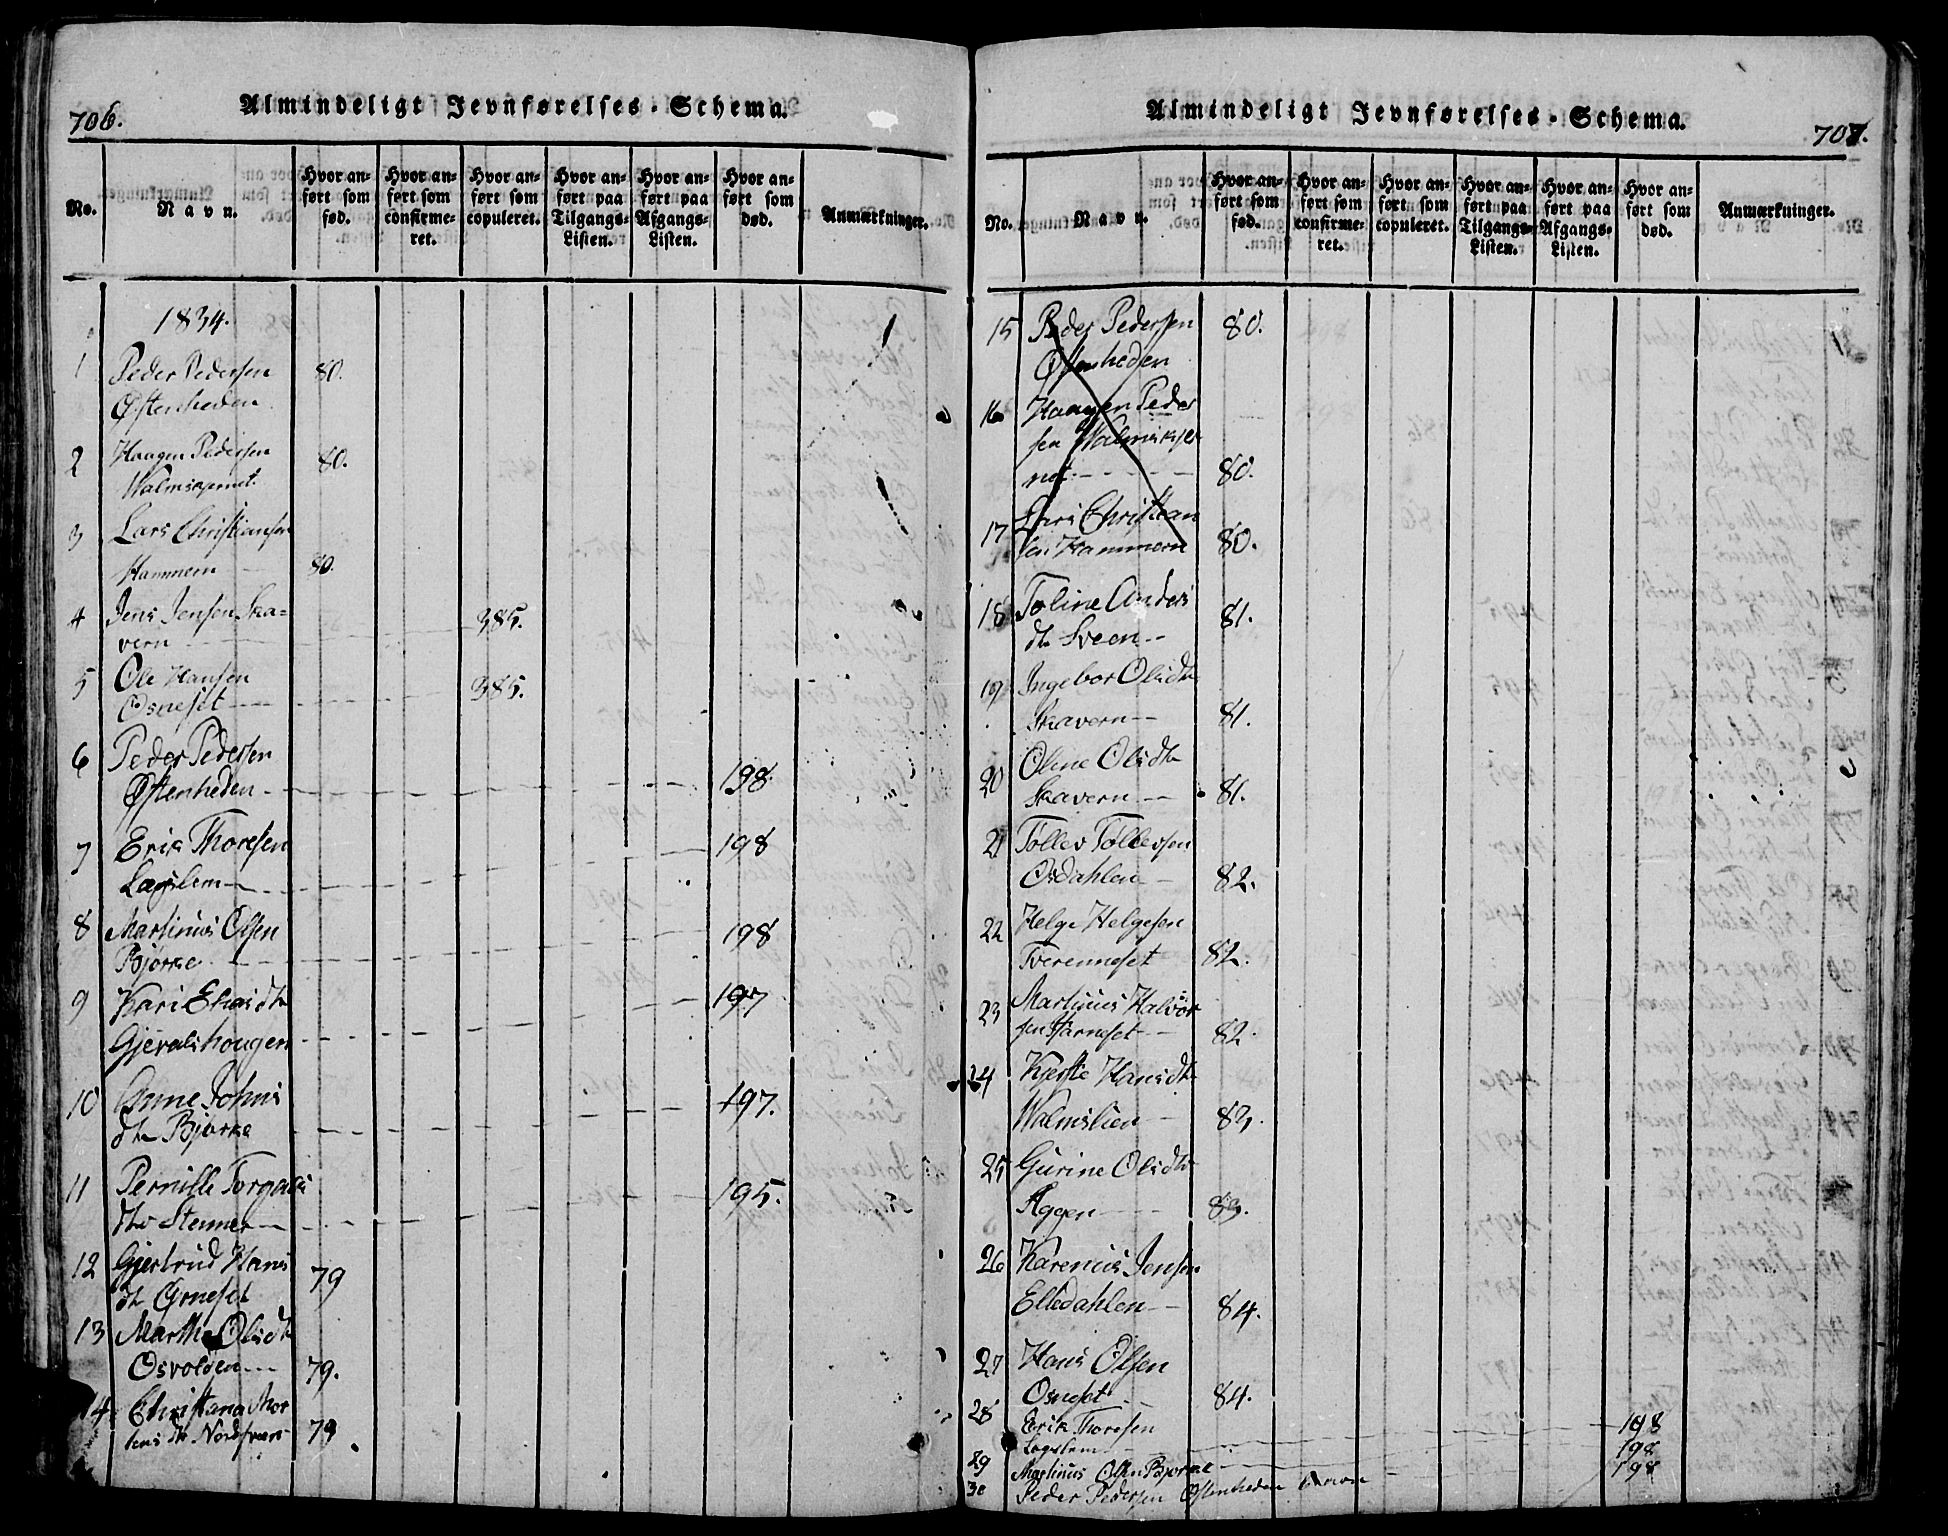 706.
Almindeligt Jevnførelses-Schema.
No.
Navn.
Hvor anført som fød.
Hvor anført som confirmeret.
Hvor anført som copuleret.
Hvor anført paa Tilgangs-Listen.
Hvor anført paa Afgangs-Listen.
Hvor anført som død.
Anmærkninger.
1834.
1 Peder Pedersen 80.
Østenheden
2 Haagen Pedersen 80.
Walmskjernet.
3 Lars Christiansen
Hammern 80.
4 Jens Jensen Ska= 385.
vern
5 Ole Hansen 385.
Osneset
6 Peder Pedersen
Østenheden 198.
7 Erik Thoresen 198
Lagslem
8 Martinus Olsen 198
Bjørke
9 Kari Eliasdtr 197
Gjevalshougen
10 Anne Johns 197.
dtr Bjørke
11 Pernille Torgals 195.
dtr Stenner
12 Gjertrud Hans 79
dtr Ørneset
13 Marthe Olsdtr
Osvolden 79.
14 Christiana Mor
tens dtr Nordsveen 79
707.
Almindeligt Jevnførelses-Schema.
No.
Navn.
Hvor anført som fød.
Hvor anført som confirmeret.
Hvor anført som copuleret.
Hvor anført paa Tilgangs-Listen.
Hvor anført paa Afgangs-Listen.
Hvor anført som død.
Anmærkninger.
15 Peder Pedersen 80.
Østenheden
16 Haagen Peder
sen Walmskjer
net 80.
17 Lars Christian
sen Hammern 80.
18 Toline Anders 81.
dtr Sveen
19 Ingebor Olsdtr
Skavern 81.
20 Oline Olsdtr
Skavern 81.
21 Tollev Tollevsen
Osdahlen 82.
22 Helge Helgesen
Tverenneset 82.
23 Martinus Halvor
sen Harneset 82.
24 Kjersti Hansdtr
Walmslien 83.
25 Gurine Olsdtr
Aggen 83.
26 Karenus Jensen
Elledahlen 84.
27 Hans Olsen
Osneset 84.
28 Erik Thoresen
Lagslem 198
29 Martinus Olsen Bjørke 198
30 Peder Pedersen Østenheden 198